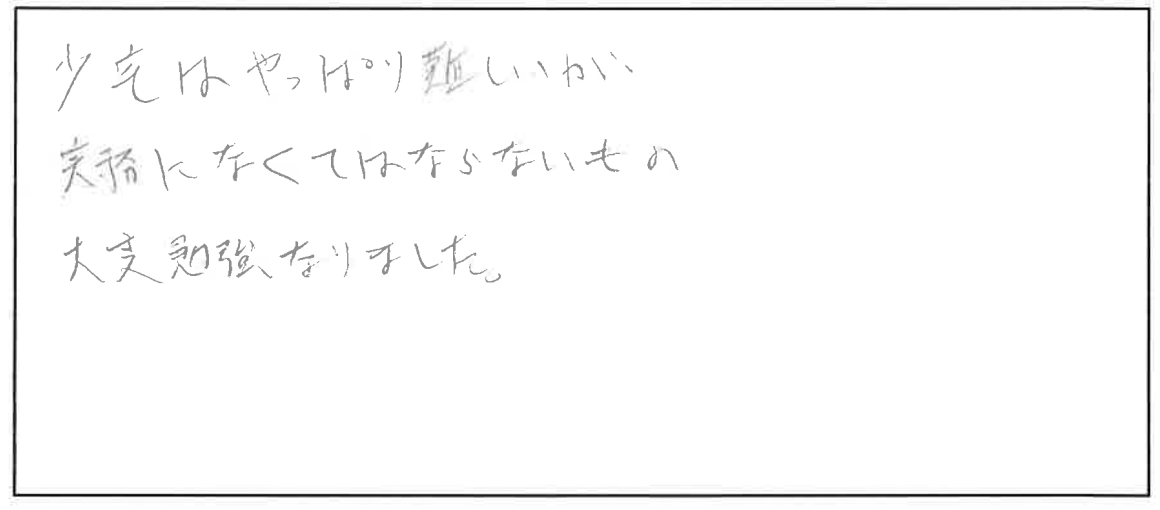 少宅はやっぱり難しいが、
実務になくてはならないもの
大変勉強なりました。